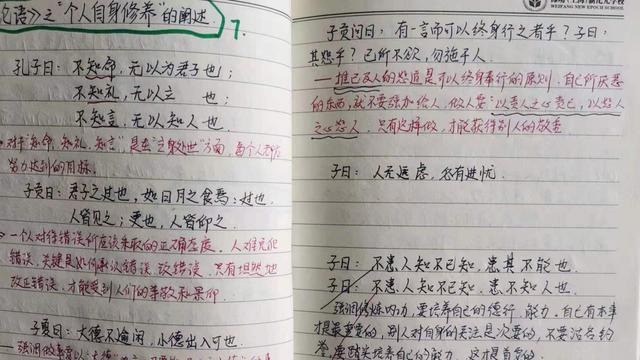 论语》之"个人自身修养"的阐述
7.
孔子曰：不知命，无以为君子也；
不知礼，无以立 也；
不知言，无以知人也．
对于"知命、知礼、知言"，是在"立身处世"方面，每个人
努力达到的目标．
子贡曰：君子之过也，如日月之食焉：过也．
人皆见之；更也，人皆仰之．
一个人对待错误所应该采取的正确态度．人难免犯
错误，关键是如何承认错误，改错误．只有坦然地
改正错误，才能受到人们的尊敬和景仰
子夏曰：大德不逾闲，小德出入可也．
潍坊（上海）新纪元学校
WEIFANG NEW EPOCH SCHOOL
子贡问曰：有一言而可以终身行之者乎？子曰：
其恕乎？己所不欲，勿施于人．
—推己及人的恕道是可以终身奉行的原则，自己所厌恶
的东西，就不要强加给人，做人要"以责人之心责己，以恕人
之心恕人．只有这样做，才能获得别人的敬重
子曰：人无远虑，必有近忧．
子曰：不患人知不已知，患其不能也．
子曰：不患人知不已知，患不知人也．
强调修炼内力，要培养自己的德行、能力．自己有本事
才最重要的，别人对自身的看法是次要的，不要沽名钓
誉，要踏实培养自己的能力，这才最重要的